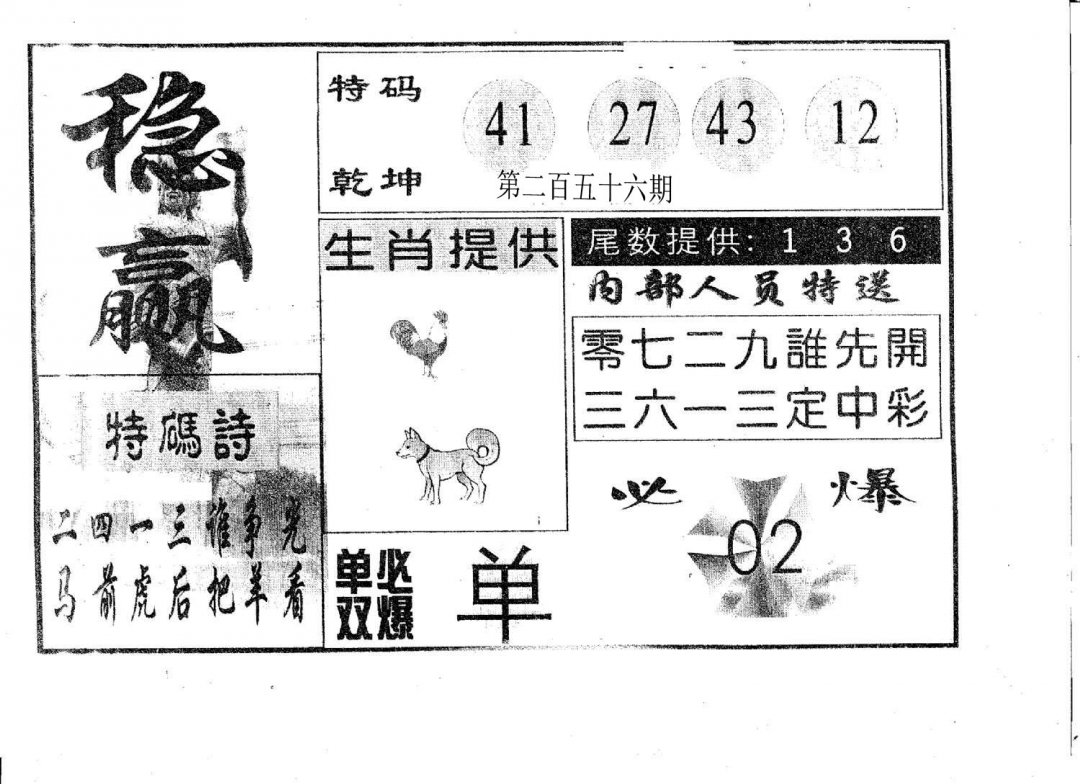 稳
赢
特码
41 27 43 12
乾坤
第二百五十六期
生肖提供
尾数提供: 1 3 6
内部人员特送
零七二九誰先開
三六一三定中彩
特碼詩
二四一三谁争光
马前虎后把羊看
必爆
02
单双
必爆
单